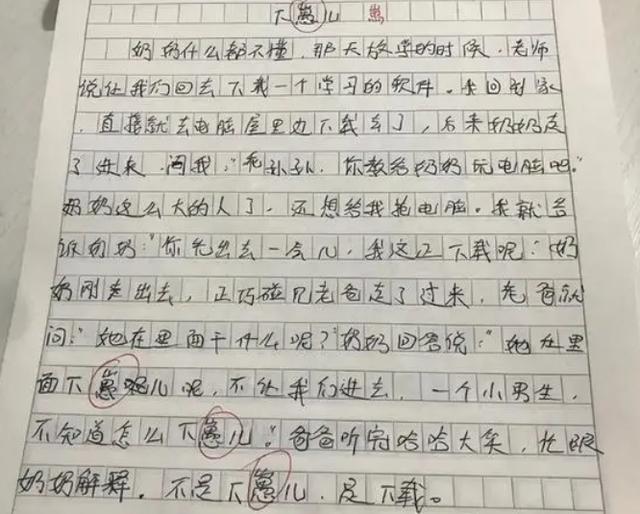 下崽儿 崽
奶奶什么都不懂,那天放学的时候,老师
说让我们回去下载一个学习的软件。我回到家
,直接就去电脑屋里边下载去了,后来奶奶走
了进来,问我:"老孙孙,你教给奶奶玩电脑吧。"
奶奶这么大的人了,还想给我抢电脑。我就告
诉奶奶:"你先出去一会儿,我这正下载呢!"奶
奶刚走出去,正巧碰见老爸走了过来,老爸就
问:"她在里面干什么呢?"奶奶回答说:"她在里
面下崽儿呢,不让我们进去,一个小男生,
不知道怎么下崽儿。"爸爸听完哈哈大笑,忙跟
奶奶解释。不是下崽儿,是下载。